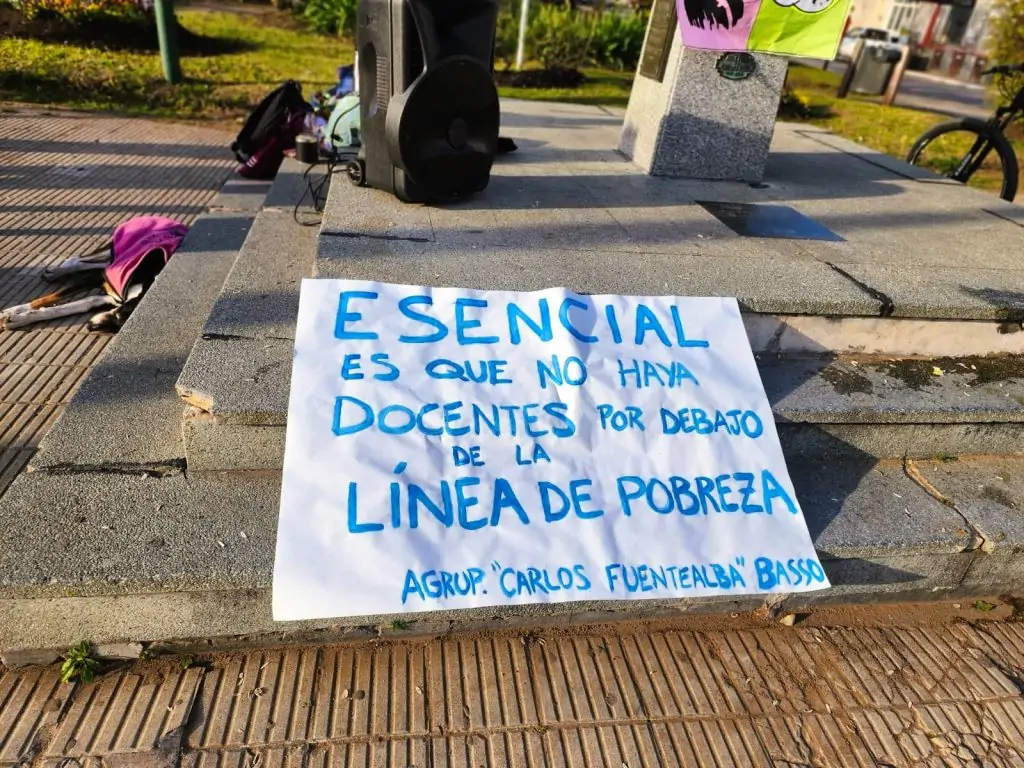 ESENCIAL
ES QUE NO HAYA
DOCENTES POR DEBAJO
DE LA
LÍNEA DE POBREZA
AGRUP. "CARLOS FUENTEALBA" BASSO